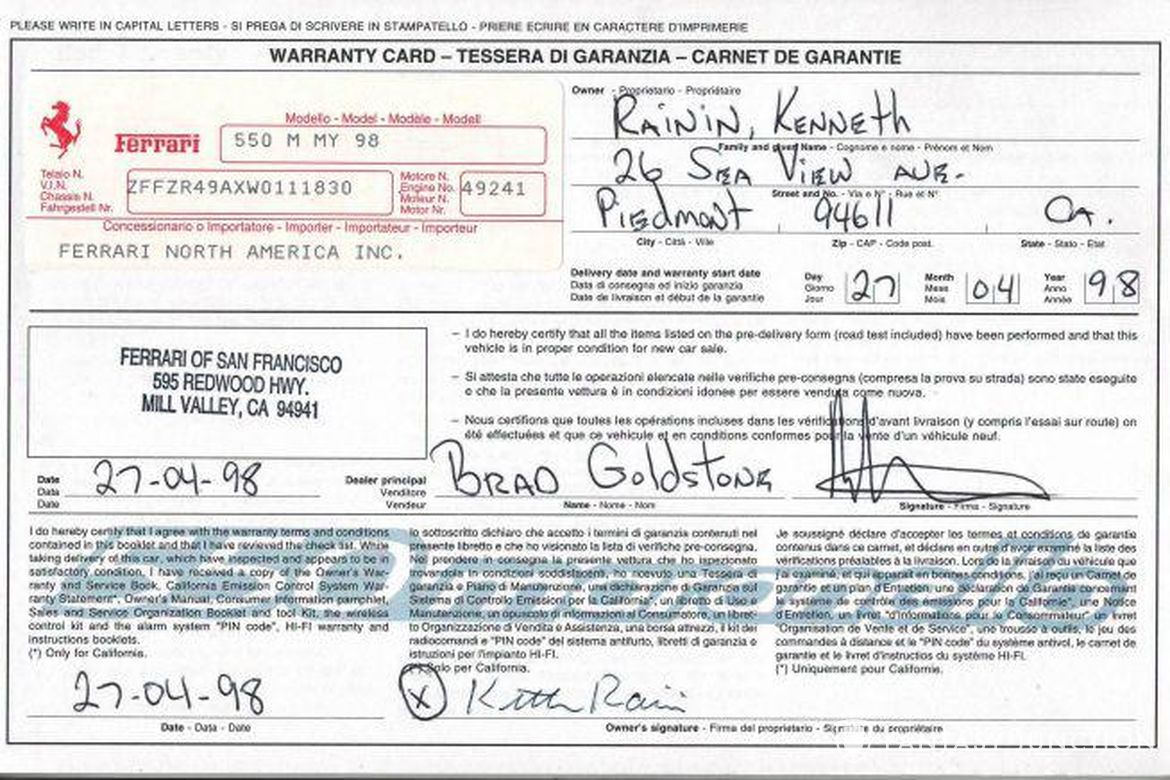 PLEASE WRITE IN CAPITAL LETTERS - SI PREGA DI SCRIVERE IN STAMPATELLO - PRIERE ECRIRE EN CARACTERE D'IMPRIMERIE
WARRANTY CARD – TESSERA DI GARANZIA – CARNET DE GARANTIE
Owner - Proprietario - Propriétaire
RAININ, KENNETH
Family and given Name - Cognome e nome - Prénom et Nom
26 SEA VIEW AVE.
Street and No. - Via e N° - Rue et N°
PIEDMONT 94611 CA.
City - Città - Ville Zip - CAP - Code post. State - Stato - Etat
Modello - Model - Modèle - Modell
Ferrari 550 M MY 98
Telaio N.
V.I.N.
Chassis N.
Fahrgestell Nr.
ZFFZR49AXW0111830
Motore N.
Engine No.
Moteur N.
Motor Nr.
49241
Concessionario o Importatore - Importer - Importateur - Importeur
FERRARI NORTH AMERICA INC.
Delivery date and warranty start date
Data di consegna ed inizio garanzia
Date de livraison et début de la garantie
Day
Giorno
Jour
27
Month
Mese
Mois
04
Year
Anno
Année
98
FERRARI OF SAN FRANCISCO
595 REDWOOD HWY.
MILL VALLEY, CA 94941
– I do hereby certify that all the items listed on the pre-delivery form (road test included) have been performed and that this
vehicle is in proper condition for new car sale.
– Si attesta che tutte le operazioni elencate nelle verifiche pre-consegna (compresa la prova su strada) sono state eseguite
e che la presente vettura è in condizioni idonee per essere venduta come nuova.
– Nous certifions que toutes les opérations incluses dans les vérifications d'avant livraison (y compris l'essai sur route) on
été effectuées et que ce vehicule et en conditions conformes pour la vente d'un véhicule neuf.
Date
Data
Date
27-04-98
Dealer principal
Venditore
Vendeur
BRAD GOLDSTONE
Name - Nome - Nom
Signature - Firma - Signature
I do hereby certify that I agree with the warranty terms and conditions
contained in this booklet and that I have revieved the check list. While
taking delivery of this car, which have inspected and appears to be in
satisfactory condition, I have received a copy of the Owner's War-
ranty and Service Book, California Emission Control System War-
ranty Statement*, Owner's Manual, Consumer Information pamphlet,
Sales and Service Organization Booklet and tool Kit, the wireless
control kit and the alarm system "PIN code", HI-FI warranty and
instructions booklets.
(*) Only for California.
Io sottoscritto dichiaro che accetto i termini di garanzia contenuti nel
presente libretto e che ho visionato la lista di verifiche pre-consegna.
Nel prendere in consegna la presente vettura che ho ispezionato
trovandola in condizioni soddisfacenti, ho ricevuto una Tessera di
garanzia e Piano di Manutenzione, una dichiarazione di Garanzia sul
Sistema di Controllo Emissioni per la California*, un libretto di Uso e
Manutenzione, un opuscolo di informazioni al Consumatore, un libret-
to Organizzazione di Vendita e Assistenza, una borsa attrezzi, il kit dei
radiocomandi e "PIN code" del sistema antifurto, libretti di garanzia e
istruzioni per l'impianto HI-FI.
(*) Solo per California.
Je soussigné déclare d'accepter les termes et conditions de garantie
contenus dans ce carnet, et déclare en outre d'avoir examiné la liste des
vérifications préalables à la livraison. Lors de la livraison du véhicule que
j'ai examiné, et qui apparait en bonnes conditions, j'ai reçu un Carnet de
garantie et un plan d'Entretien, une déclaration de Garantie concernant
le système de contrôle des émissions pour la Californie*, une Notice
d'Entretien, un livret "d'informations pour le Consommateur" un livret
"Organisation de Vente et de Service", une trousse à outils, le jeu des
commandes à distance et le "PIN code" du système antivol, le carnet de
garantie et le livret d'instructios du système HI-FI.
(*) Uniquement pour Californie.
27-04-98
Date - Data - Date
X
Owner's signature - Firma del proprietario - Signature du propriétaire